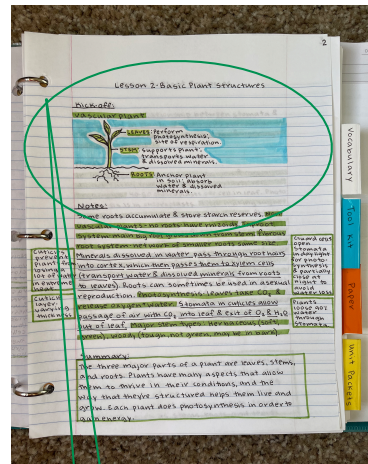 2
Lesson 2-Basic Plant Structures
Kick-off:
Vascular plant
LEAVES: Perform
photosynthesis;
site of respiration.
STEM: Supports plant,
transports water
& dissolved minerals.
ROOTS: Anchor plant
in soil; absorb
water & dissolved
minerals.
Notes:
Some roots accumulate & store starch reserves.
Vascular plants: no roots have rhizoids
system
root system
Minerals dissolved in water, pass through root hairs
into cortex, which then passes them to xylem cells
(transport water & dissolved minerals from roots
to leaves). Roots can sometimes be used in asexual
reproduction. Photosynthesis: leaves take CO₂ &
oxygen & water. Stomata in cuticles allow
passage of air with CO₂ into leaf & exit of O₂ & H₂O
out of leaf. Major stem types: herbaceous (soft,
green), woody (tough, not green, may be in bark).
Cuticles
prevent
plant from
losing a
lot of water
in extreme
Cuticle
layer
varying
thickness
Guard cells
open
stomata
in daylight
for photo-
synthesis
& partially
close at
night to
avoid
water loss
Plants
loose H₂O
water
through
stomata
Summary:
The three major parts of a plant are leaves, stems,
and roots. Plants have many aspects that allow
them to thrive in their conditions, and the
way that they're structured helps them live and
grow. Each plant does photosynthesis in order to
gain energy.
Vocabulary
Tool Kit
Paper
Unit Packets